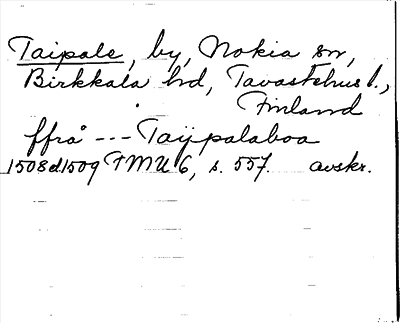 Taipale, by, Nokia sn,
Birkkala hd, Tavastehus l.,
Finland
ffrå --- Taÿpalaboa
1508d1509 TMU 6, s. 557. avskr.